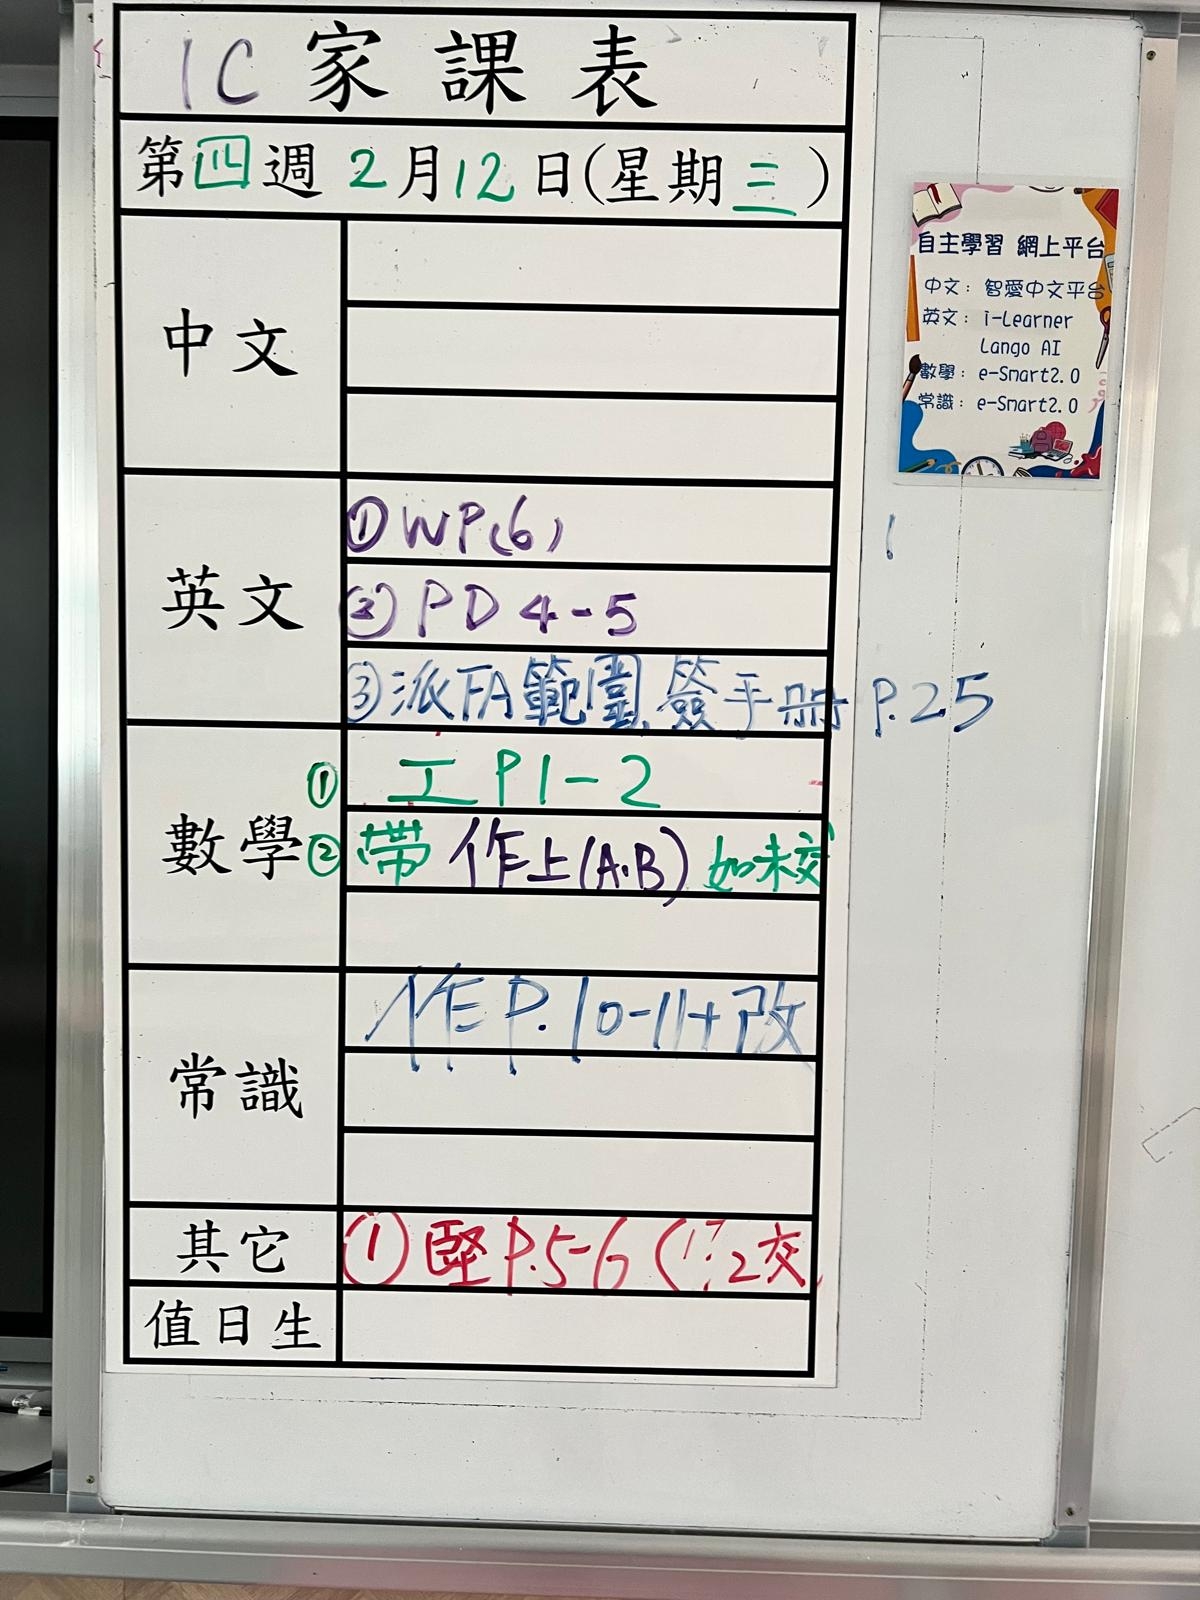 1C 家課表
第四週 2月12日(星期三)
中文
英文
① WP(6)
② PD 4-5
③ 派FA範圍, 簽手冊 P.25
數學
① 工 P1-2
② 帶 作上(A.B) 如未交
常識
作 P.10-11+改
其它
① 豎 P.5-6 (17/2交)
值日生
自主學習 網上平台
中文：智愛中文平台
英文：i-Learner
Lango AI
數學：e-Smart2.0
常識：e-Smart2.0